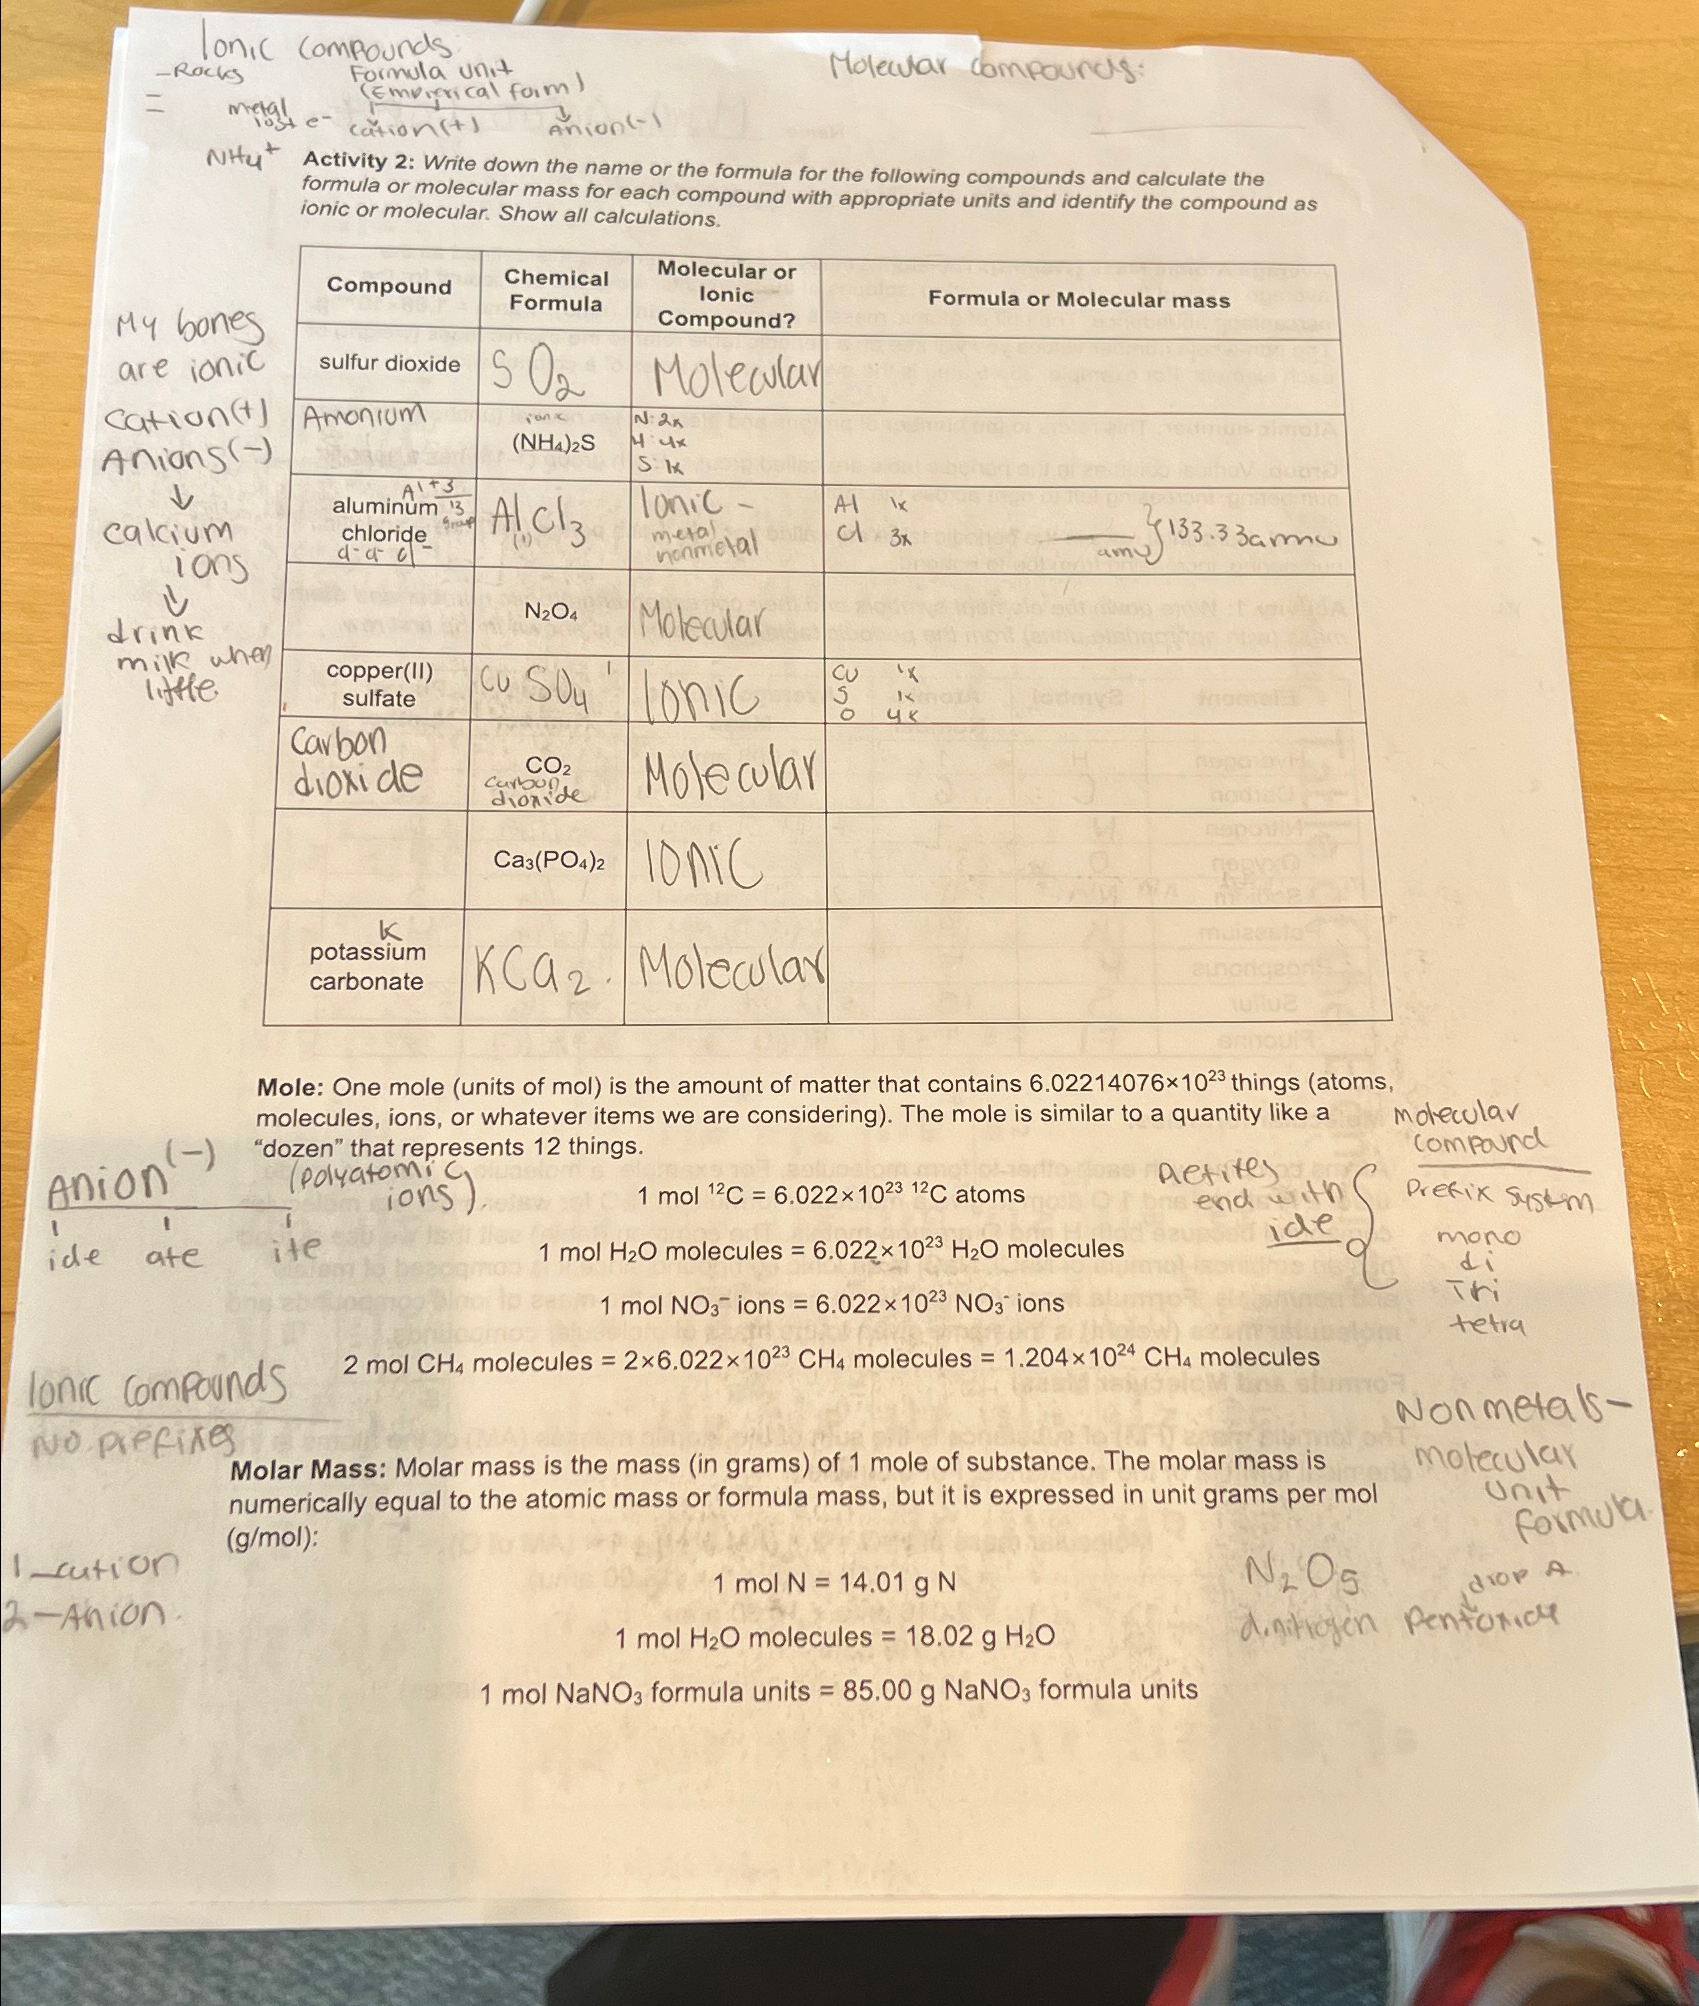 Ionic compounds
-Rocks
Formula unit
(Empierical form)
=
metal
lost e-
cation(+)
Anion(-)
Molecular compounds:
NH4+
Activity 2: Write down the name or the formula for the following compounds and calculate the
formula or molecular mass for each compound with appropriate units and identify the compound as
ionic or molecular. Show all calculations.
Compound
Chemical
Formula
Molecular or
Ionic
Compound?
Formula or Molecular mass
sulfur dioxide
SO2
Molecular
Amonium
ionic
(NH4)2S
N: 2x
H: 4x
S: 1x
Al+3
aluminum 13
group
chloride
cl- cl- cl-
AlCl3
(1)
Ionic -
metal
nonmetal
Al 1x
Cl 3x
amu
133.33amu
N2O4
Molecular
copper(II)
sulfate
Cu SO4
Ionic
Cu 1x
S 1x
O 4x
Carbon
dioxide
CO2
carbon
dioxide
Molecular
Ca3(PO4)2
Ionic
K
potassium
carbonate
KCa2.
Molecular
My bones
are ionic
cation(+)
Anions(-)
↓
calcium
ions
↓
drink
milk when
little
Mole: One mole (units of mol) is the amount of matter that contains 6.02214076×10²³ things (atoms,
molecules, ions, or whatever items we are considering). The mole is similar to a quantity like a
“dozen” that represents 12 things.
1 mol ¹²C = 6.022×10²³ ¹²C atoms
1 mol H2O molecules = 6.022×10²³ H2O molecules
1 mol NO3⁻ ions = 6.022×10²³ NO3⁻ ions
2 mol CH4 molecules = 2×6.022×10²³ CH4 molecules = 1.204×10²⁴ CH4 molecules
Anion(-)
(polyatomic
ions).
ide ate ite
end with
ide
molecular
compound
Prefix system
mono
di
Tri
tetra
Ionic compounds
No prefixes
Nonmetals-
molecular
unit
formula.
Molar Mass: Molar mass is the mass (in grams) of 1 mole of substance. The molar mass is
numerically equal to the atomic mass or formula mass, but it is expressed in unit grams per mol
(g/mol):
1-cation
2-Anion.
1 mol N = 14.01 g N
1 mol H2O molecules = 18.02 g H2O
1 mol NaNO3 formula units = 85.00 g NaNO3 formula units
N2O5
drop A
dinitrogen Pentoxide